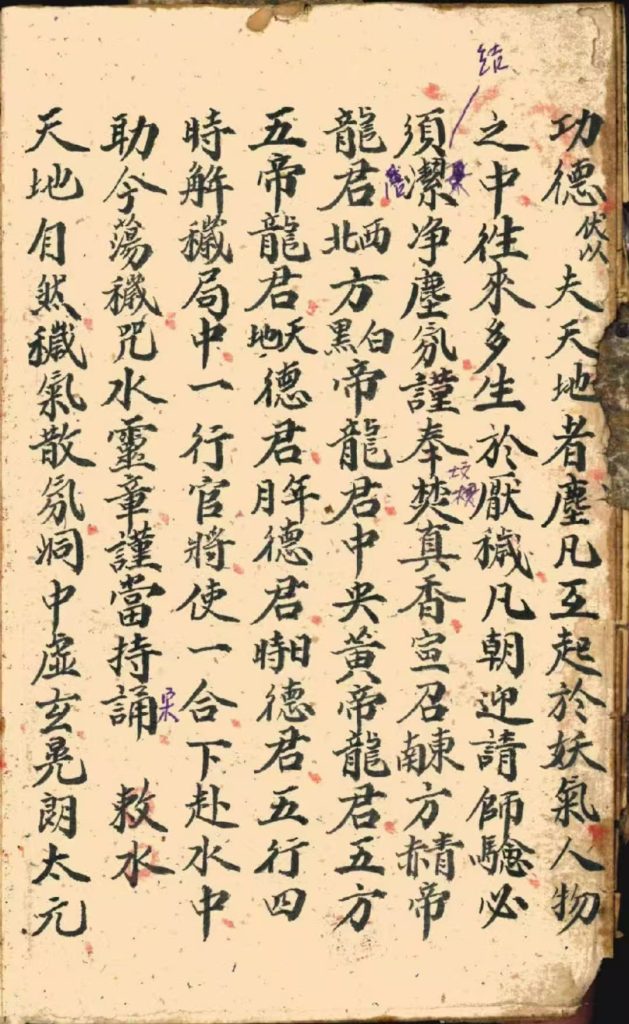 功德伏以夫天地者塵凡互起於妖氣人物
之中徃來多生於厭穢凡朝迎請師驗必
須潔净塵氛謹奉焚真香宣召東南方青赤帝
龍君西北方白黑帝龍君中央黃帝龍君五方
五帝龍君天地德君年月德君日時德君五行四
時解穢局中一行官將使一合下赴水中
助今蕩穢咒水靈章謹當持誦 敕水
天地自然穢氣散氛洞中虛玄晃朗太元